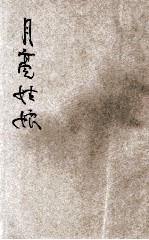 月亮姑娘